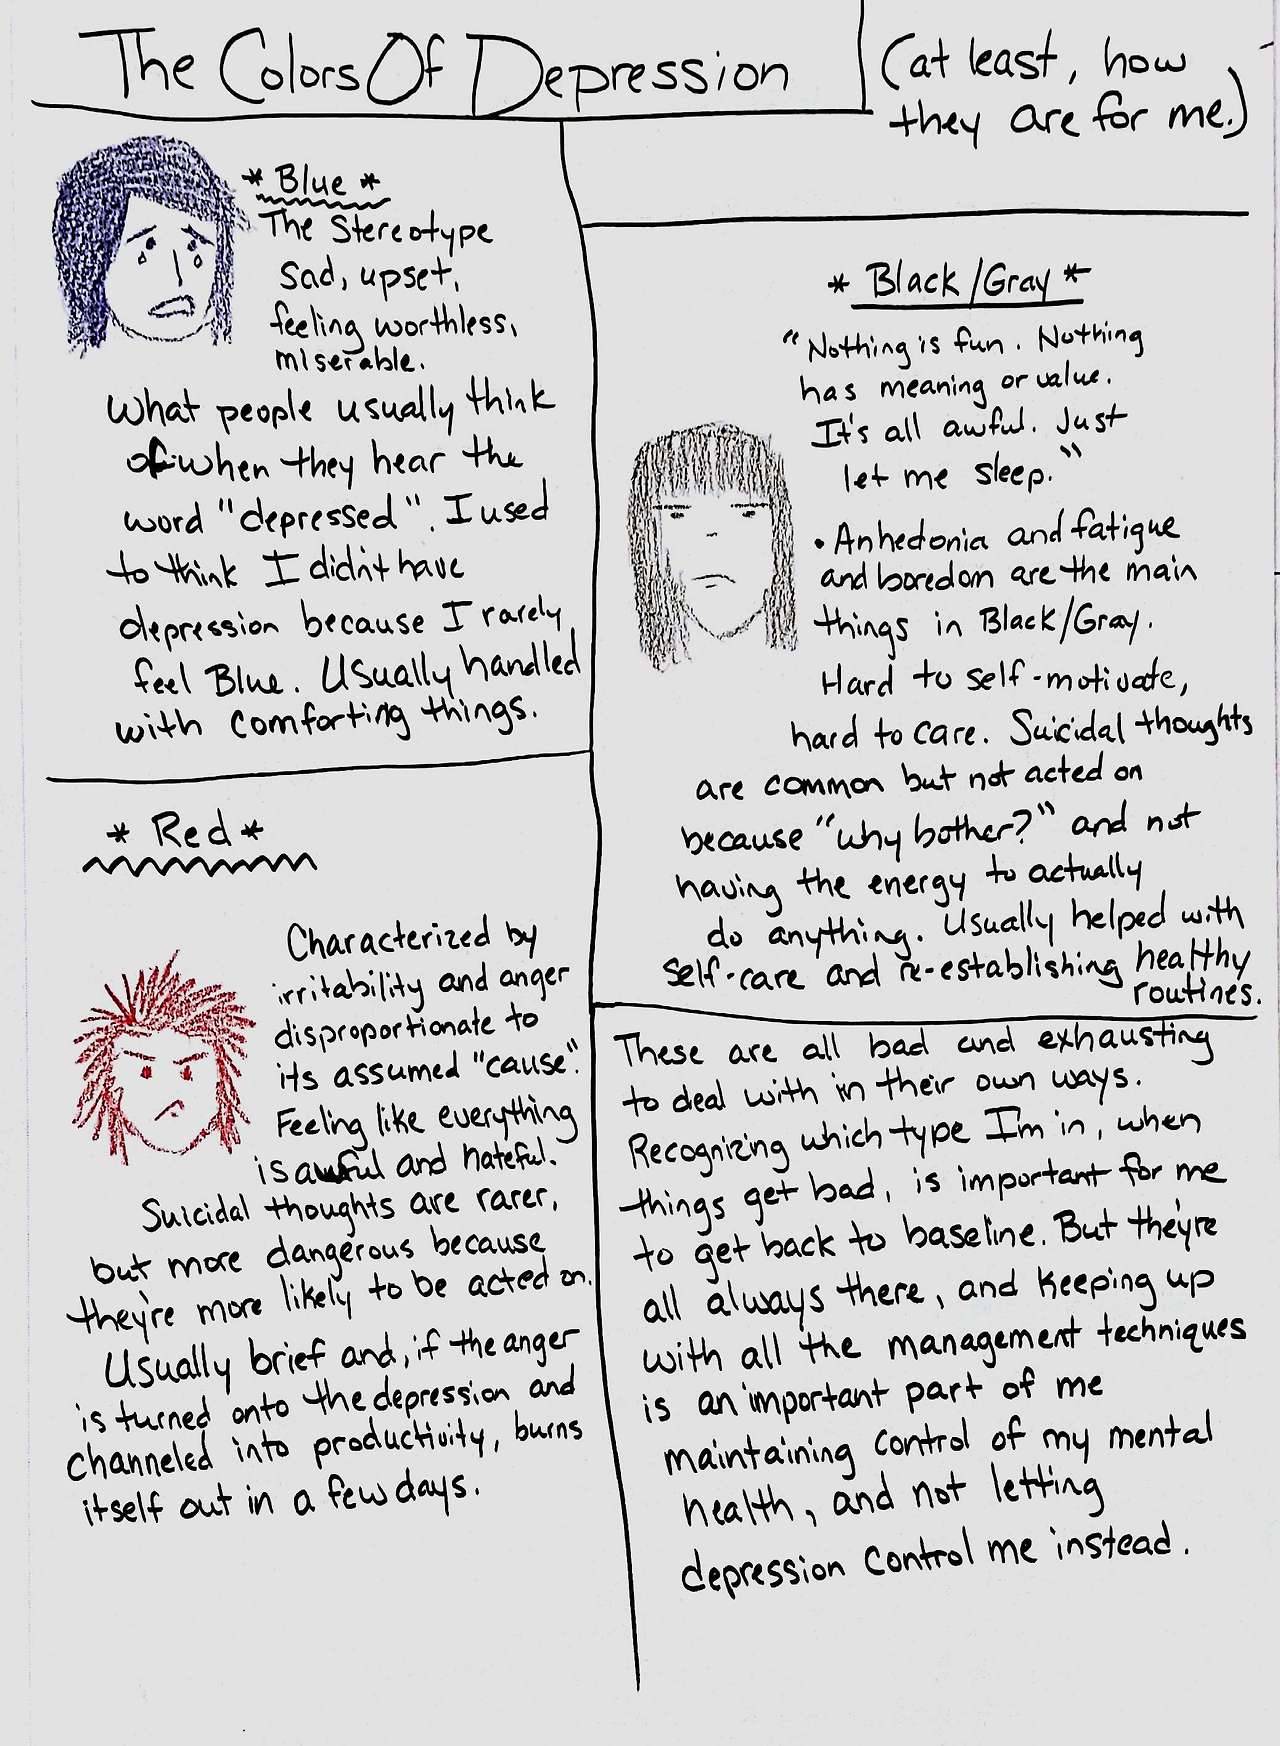 The Colors Of Depression
(at least, how
they are for me.)
* Blue *
The Stereotype
Sad, upset,
feeling worthless,
miserable.
What people usually think
of when they hear the
word "depressed". I used
to think I didn't have
depression because I rarely
feel Blue. Usually handled
with comforting things.
* Black/Gray *
"Nothing is fun. Nothing
has meaning or value.
It's all awful. Just
let me sleep."
• Anhedonia and fatigue
and boredom are the main
things in Black/Gray.
Hard to self-motivate,
hard to care. Suicidal thoughts
are common but not acted on
because "why bother?" and not
having the energy to actually
do anything. Usually helped with
self-care and re-establishing healthy
routines.
* Red *
Characterized by
irritability and anger
disproportionate to
its assumed "cause".
Feeling like everything
is awful and hateful.
Suicidal thoughts are rarer,
but more dangerous because
they're more likely to be acted on.
Usually brief and, if the anger
is turned onto the depression and
channeled into productivity, burns
itself out in a few days.
These are all bad and exhausting
to deal with in their own ways.
Recognizing which type I'm in, when
things get bad, is important for me
to get back to baseline. But they're
all always there, and keeping up
with all the management techniques
is an important part of me
maintaining control of my mental
health, and not letting
depression control me instead.